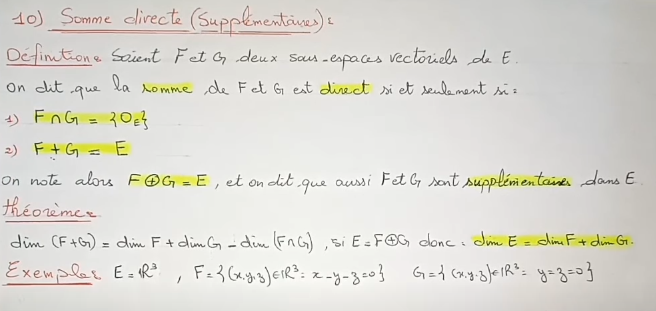 10) Somme directe (Supplémentaires):
Définition: Soient F et G deux sous-espaces vectoriels de E.
On dit que la somme de F et G est direct si et seulement si:
1) F∩G = {0_E}
2) F+G = E
On note alors F⊕G = E, et on dit que aussi F et G sont supplémentaires dans E
théorème:
dim (F+G) = dim F + dim G - dim (F∩G), si E = F⊕G donc: dim E = dim F + dim G.
Exemple: E = ℝ³, F = {(x,y,z)∈ℝ³: x-y-z=0} G = {(x,y,z)∈ℝ³: y=z=0}